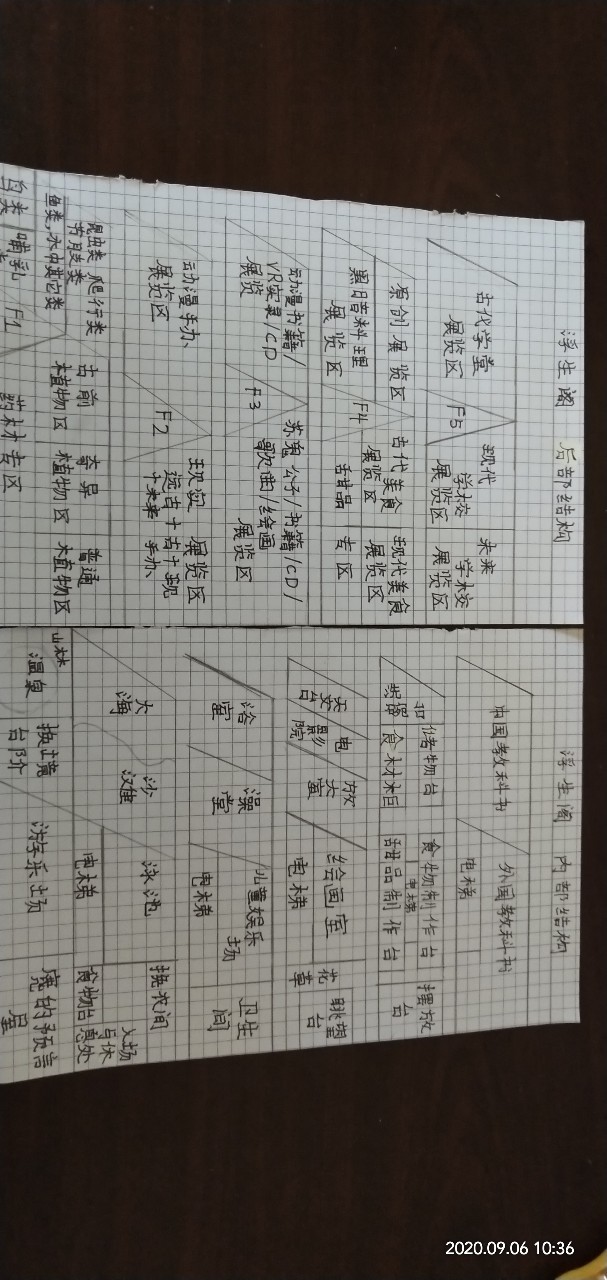 浮生阁 局部结构
古代学堂
展览区
F5
现代
学校
展览区
未来
学校
展览区
原创展览区
黑暗料理
展览区
F4
古代美食
展览区
甜品
现代美食
展览区
专区
动漫书籍/
VR实景/CD
展览
F3
苏鬼公子/书籍/CD/
歌曲/绘画
展览区
动漫手办、
展览区
F2
现实 展览区
远古十古十现
十未来 手办、
昆虫类 爬行类
节肢类
鱼类,水中其它类
鸟类
哺乳
F1
古前
植物区
奇异
植物区
普通
植物区
药材专区
浮生阁 内部结构
中国教科书
外国教科书
电梯
储物台
食材柜
食物制作台
电梯
甜品制作台
摆放
台
天文台
电影院
放大室
绘画室
电梯
眺望
台
浴室
澡堂
儿童娱乐
场
电梯
卫生
间
大海
沙漠
泳池
电梯
换衣间
食物台
入场
与休
息处
山林
温泉
台阶
游乐场
魔的预言
屋
2020.09.06 10:36